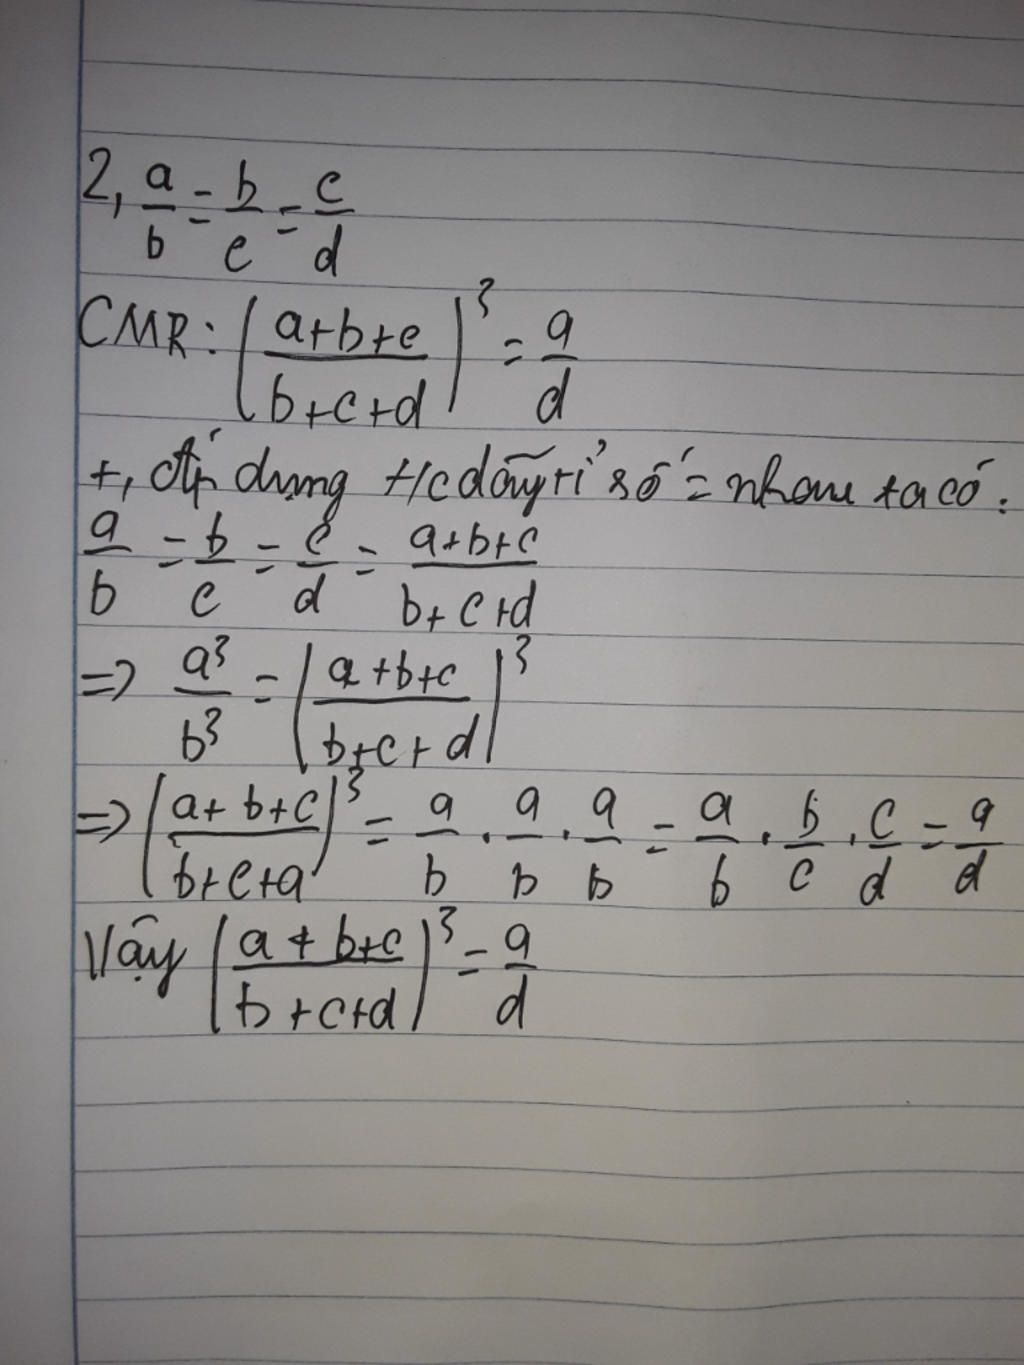 2, a/b = b/c = c/d
CMR: ((a+b+c)/(b+c+d))³ = a/d
+, Áp dụng t/c dãy tỉ số = nhau ta có:
a/b = b/c = c/d = (a+b+c)/(b+c+d)
=> a³/b³ = ((a+b+c)/(b+c+d))³
=> ((a+b+c)/(b+c+d))³ = a/b . a/b . a/b = a/b . b/c . c/d = a/d
Vậy ((a+b+c)/(b+c+d))³ = a/d